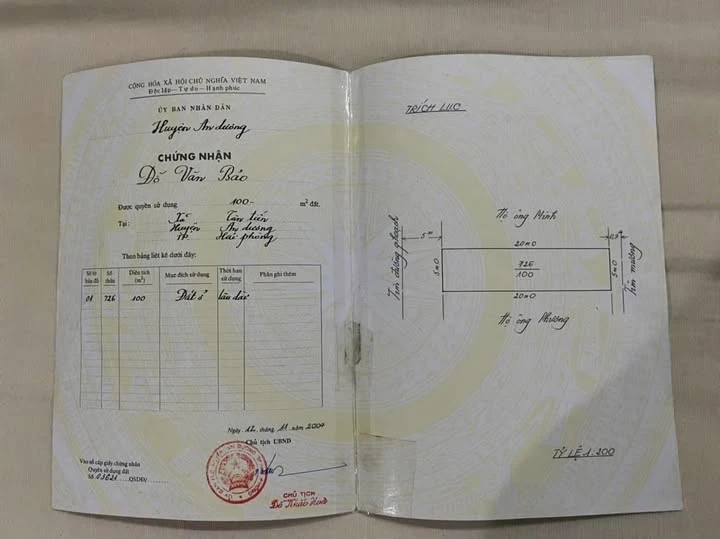 CỘNG HÒA XÃ HỘI CHỦ NGHĨA VIỆT NAM
Độc lập - Tự do - Hạnh phúc
ỦY BAN NHÂN DÂN
Huyện An dương
CHỨNG NHẬN
Đỗ Văn Bảo
Được quyền sử dụng 100- m² đất.
Tại: Xã Tân tiến
Huyện An dương
TP. Hải phòng
Theo bảng liệt kê dưới đây:
Số tờ bản đồ Số thửa Diện tích (m²) Mục đích sử dụng Thời hạn sử dụng Phần ghi thêm
01 726 100 Đất ở lâu dài
Ngày 12 tháng 11 năm 2004
Chủ tịch UBND
Vào sổ cấp giấy chứng nhận
Quyền sử dụng đất
Số QSDĐ/
CHỦ TỊCH
TRÍCH LỤC
Hộ ông Minh
Tim đường gạch
5m
20m0
5m0
726
100
5m0
Tim mương
20m0
Hộ ông Phương
TỶ LỆ 1-200